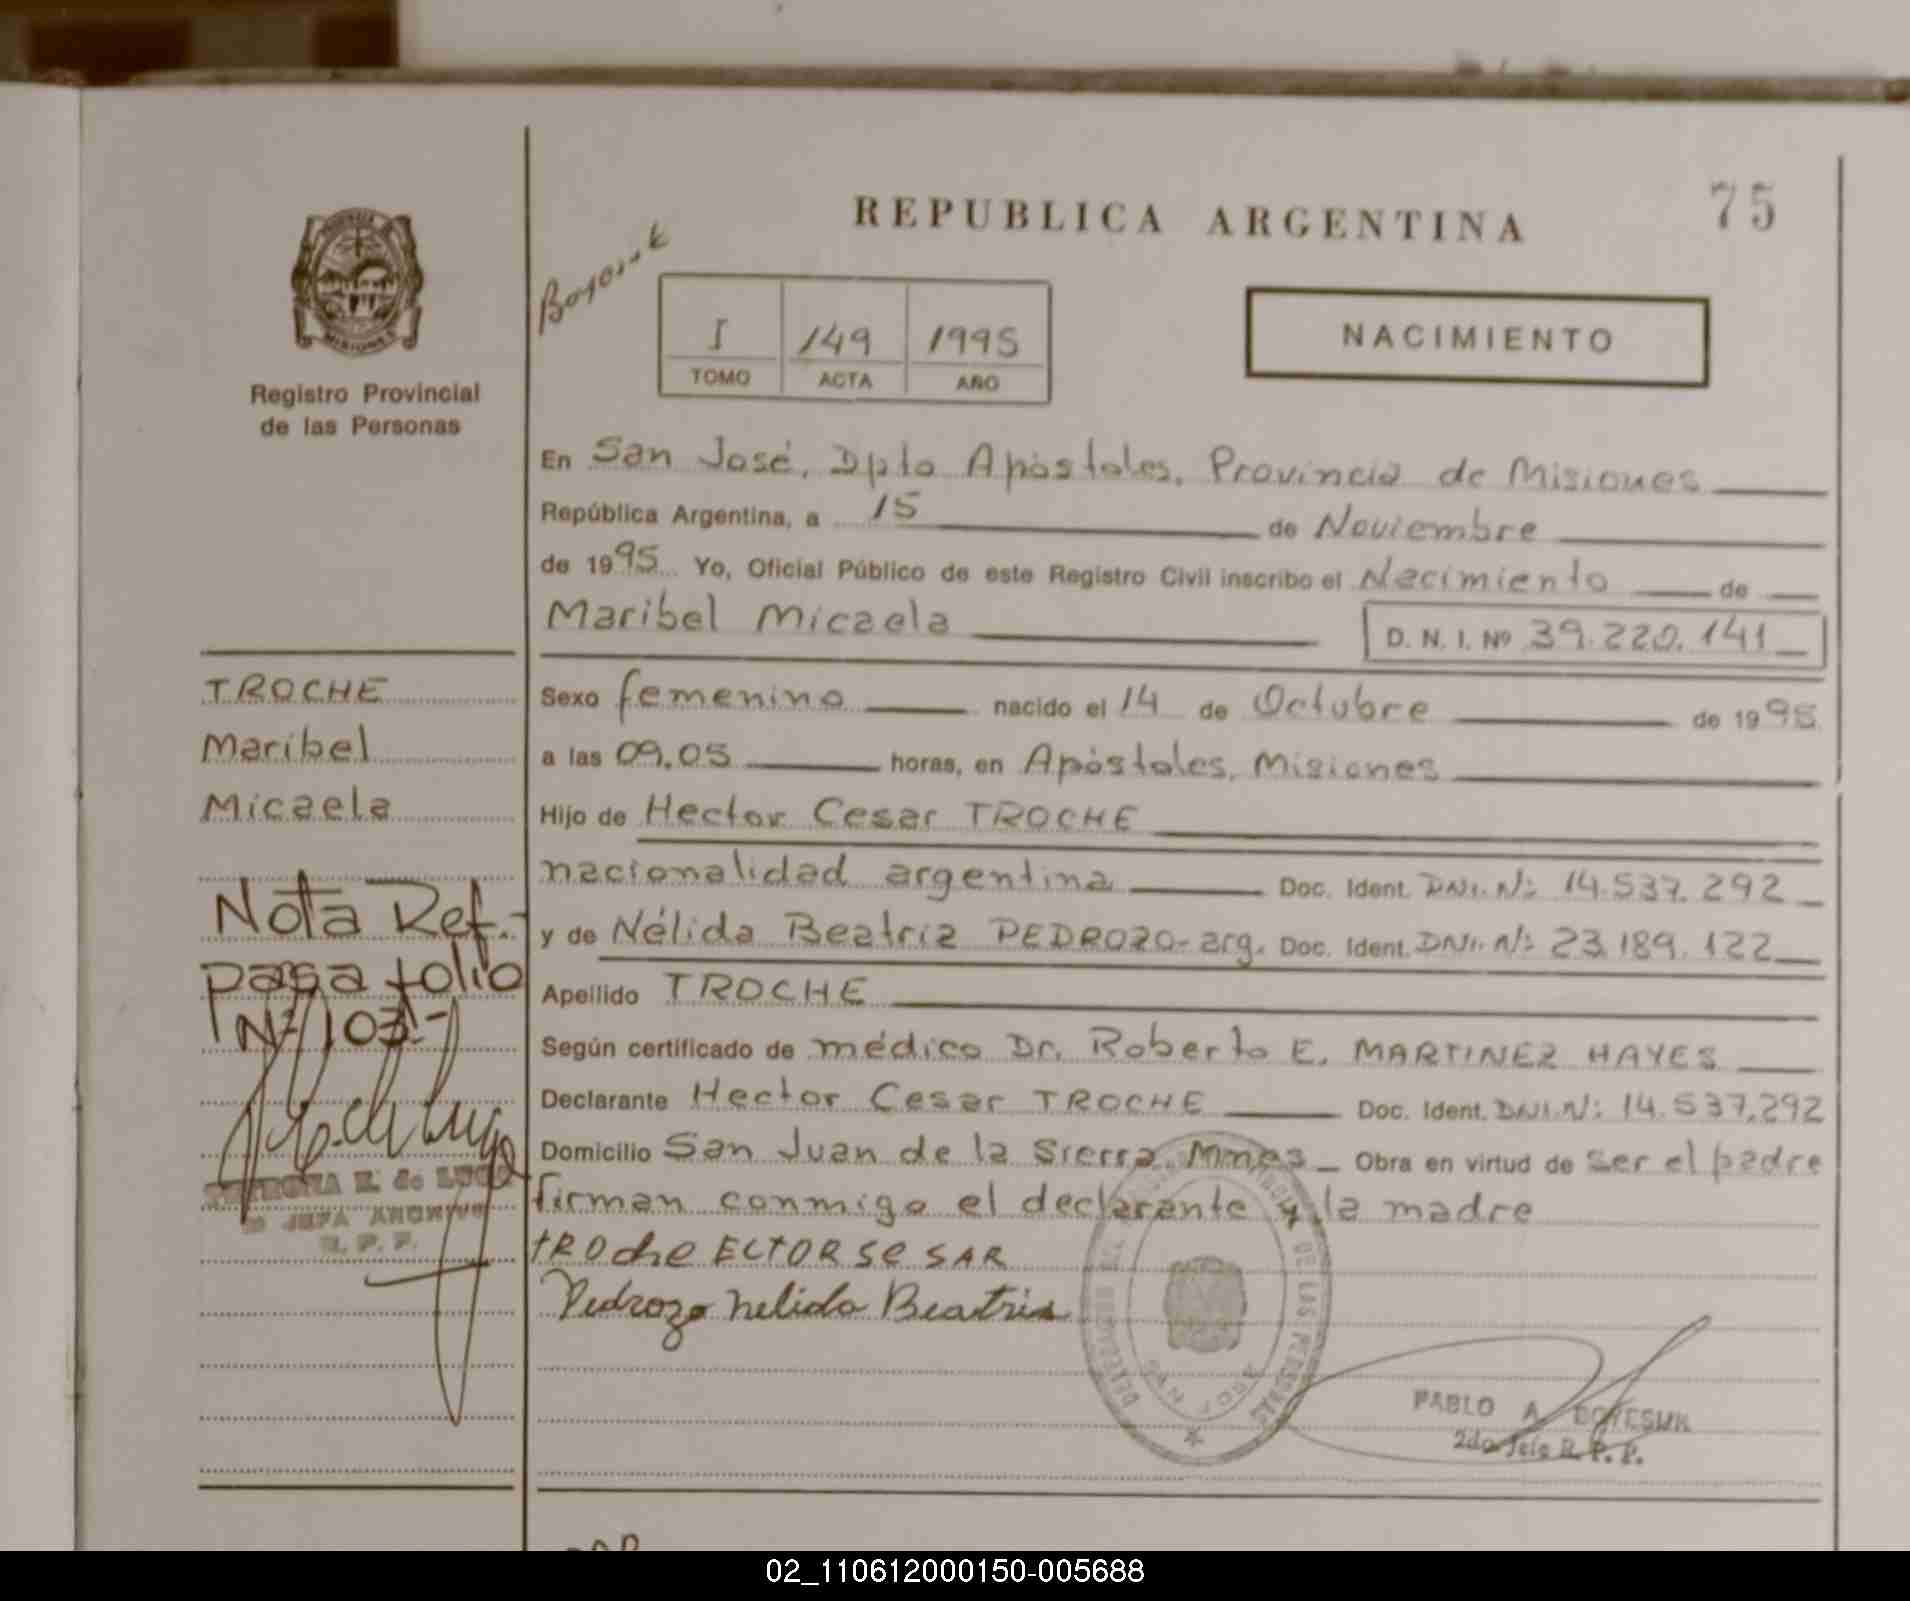 75
REPUBLICA ARGENTINA
MISIONES
Registro Provincial
de las Personas
I 149 1995
TOMO ACTA AÑO
NACIMIENTO
En San José, Dpto Apóstoles, Provincia de Misiones
República Argentina, a 15 de Noviembre
de 1995 Yo, Oficial Público de este Registro Civil inscribo el Nacimiento de
Maribel Micaela D. N. I. Nº 39.220.141
TROCHE
Maribel
Micaela
Nota Ref.-
pasa folio
Nº 103-
JEFA ARCHIVO
R. P. P.
Sexo femenino nacido el 14 de Octubre de 1995
a las 09,05 horas, en Apóstoles, Misiones
Hijo de Hector Cesar TROCHE
nacionalidad argentina Doc. Ident. DNI. Nº: 14.537.292
y de Nélida Beatriz PEDROZO-arg. Doc. Ident. DNI. Nº: 23.189.122
Apellido TROCHE
Según certificado de médico Dr. Roberto E. MARTINEZ HAYES
Declarante Hector Cesar TROCHE Doc. Ident. DNI. Nº: 14.537.292
Domicilio San Juan de la Sierra, Mnes Obra en virtud de ser el padre
firman conmigo el declarante y la madre
tROche ECTOR SE SAR
Pedrozo nelida Beatris
DE LAS PERSONAS
SAN JOSE
PABLO A.
2do. Jefe R. P. P.
02_110612000150-005688